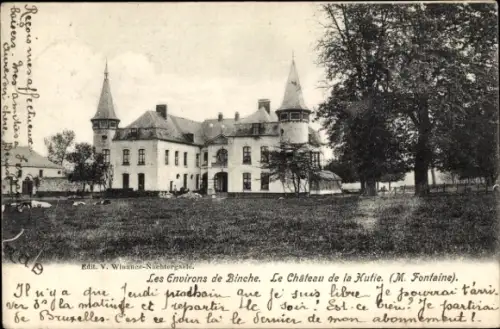 Reçois mes affectueux
baisers.
Edit. V. Winance-Nachtergaele.
Les Environs de Binche. Le Château de la Hutte. (M. Fontaine).
Il n'y a que Jeudi prochain que je suis libre, je pourrai t'arri-
ver d's la matinée et repartir le soir. Est-ce bien? Je partirai
de Bruxelles. C'est ce jour là le dernier de mon abonnement!